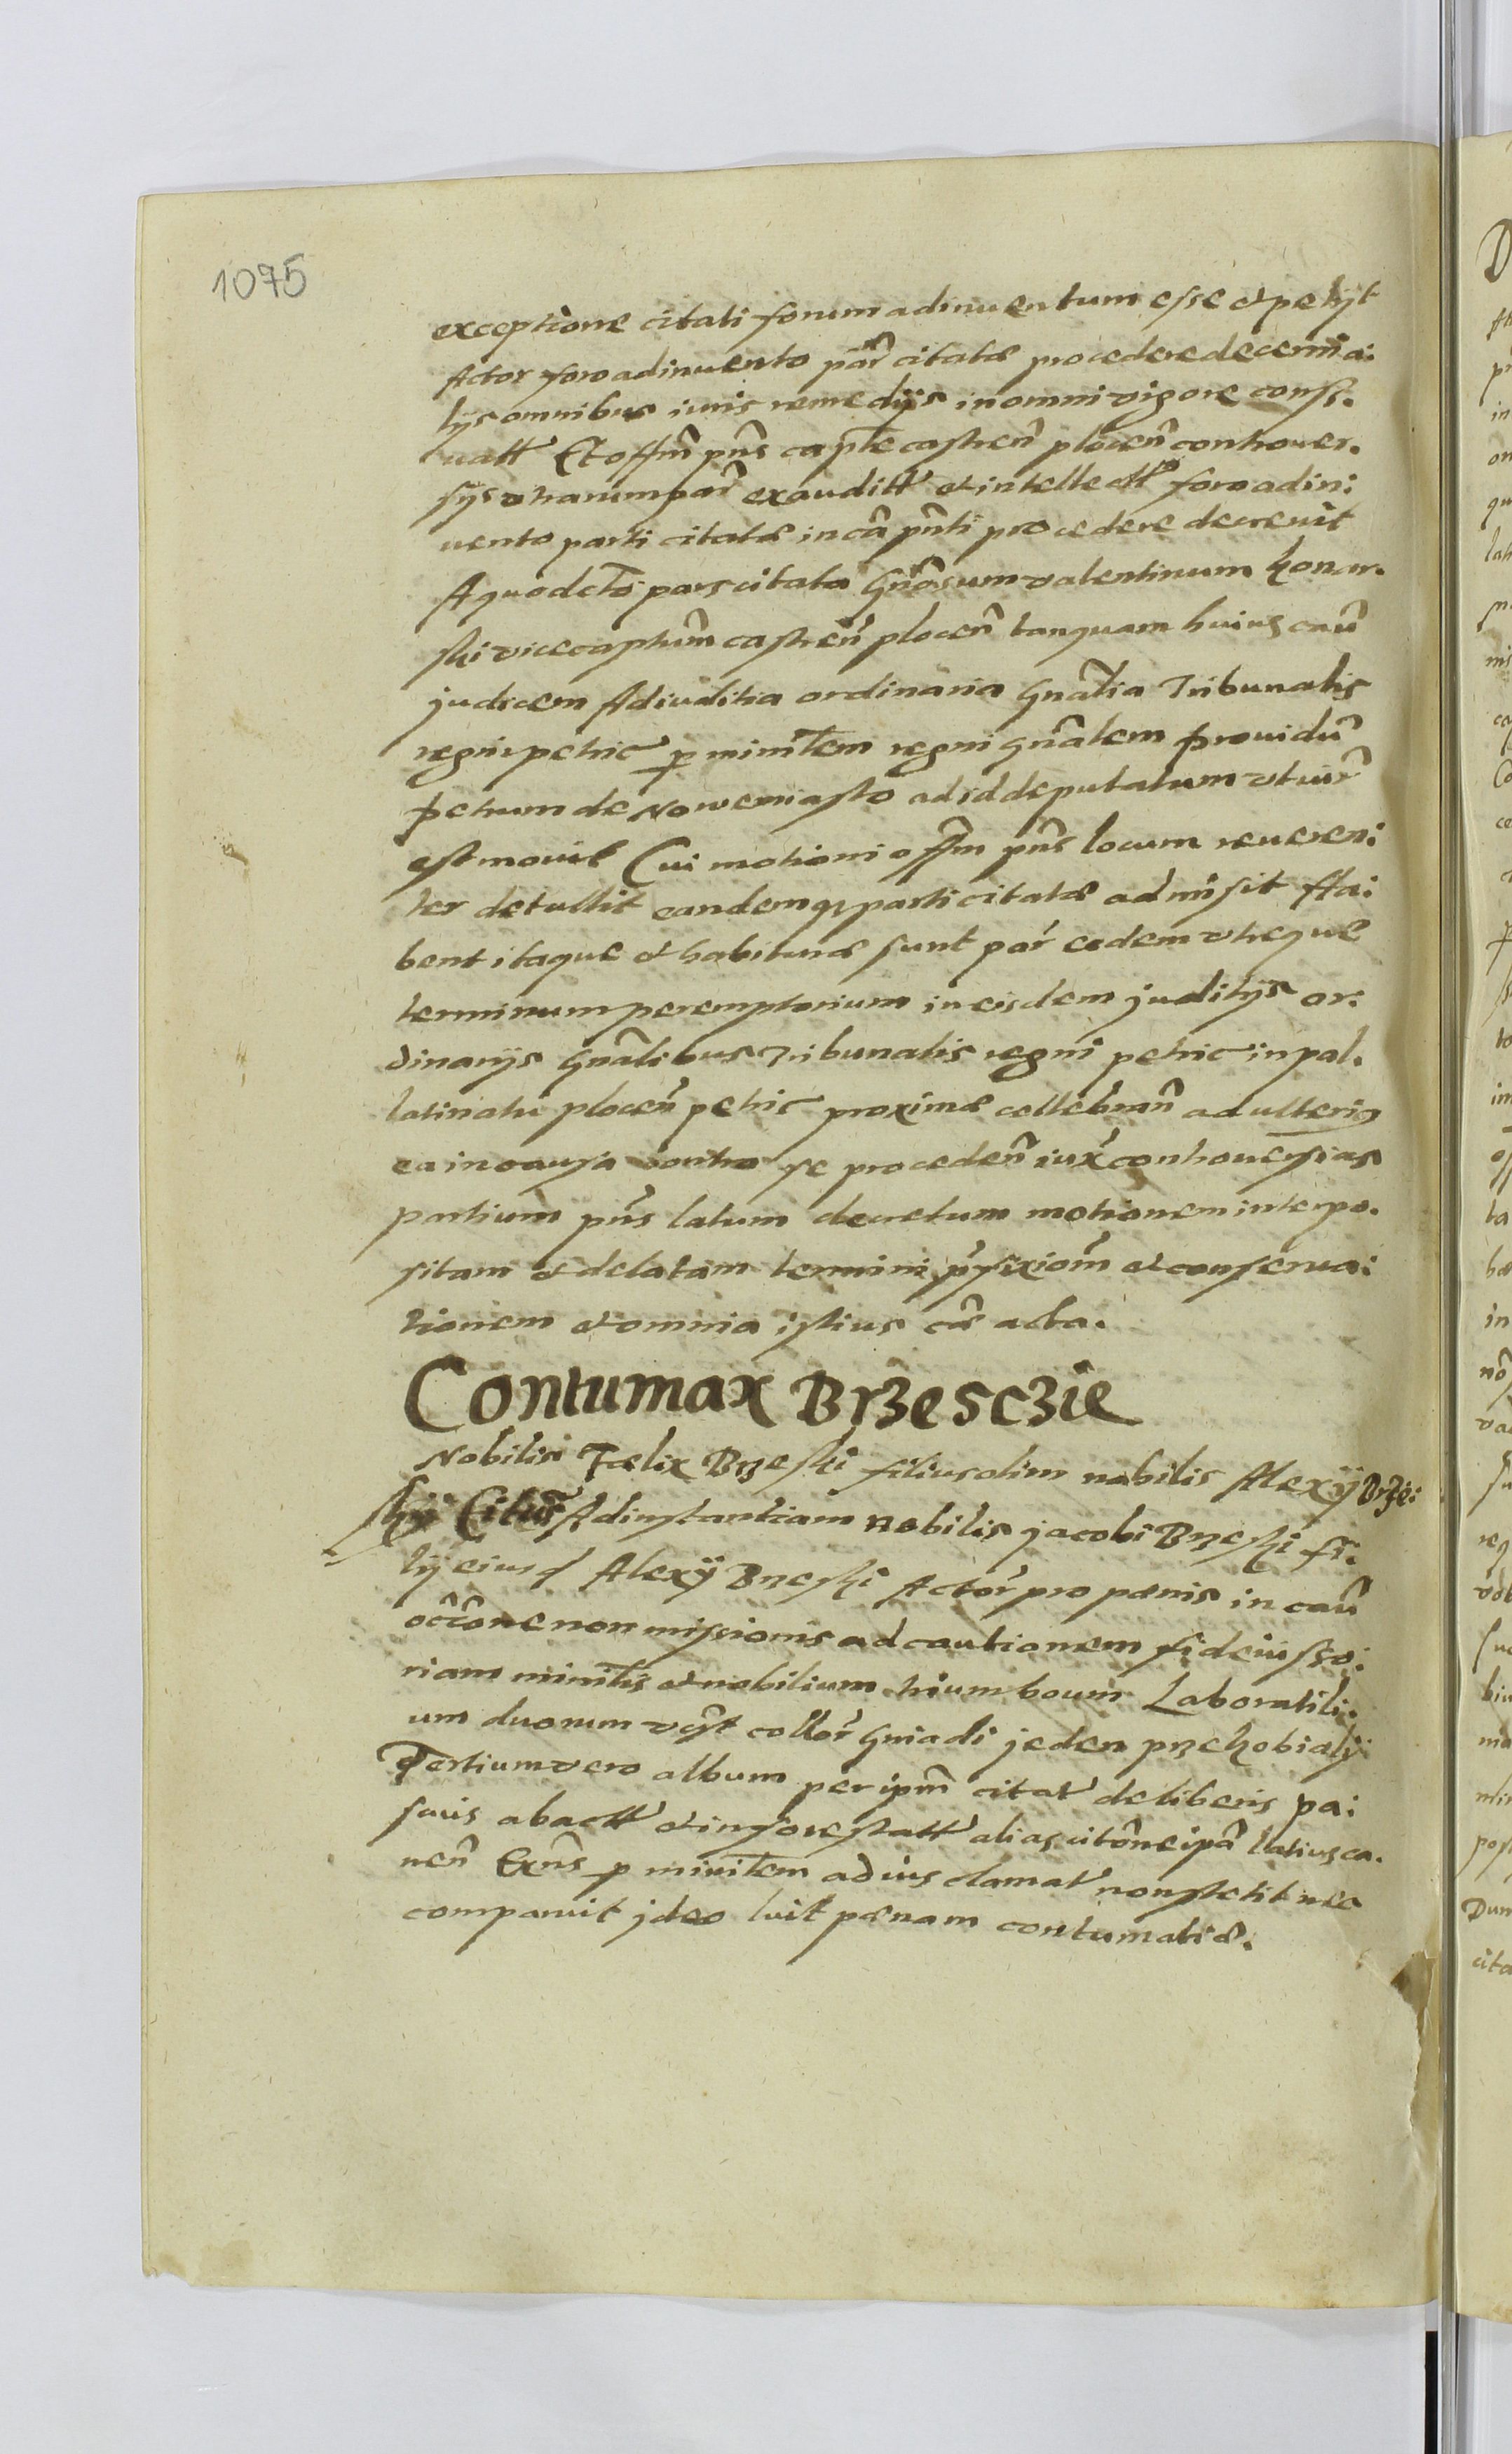 1075
exceptione citati forum adinuentum esse et petijt
Actor foro adinuento par̃ citatæ procedere decerni a:
lijs omnibus iuris remedijs in omni vigore cons̃.
uatt̃ Et off̃m pñs capłe castreñ ploceñ controuer.
sijs vtrarum par̃ exauditt̃ et intellectt̃ foro adin:
uento parti citatæ in cã pñti procedere decreuit
A quo dcto pars citata Gñosum valentinum konar.
ski vicecaptũm castreñ ploceñ tanquam huius caũ
judicem Ad iuditia ordinaria Gñalia Tribunalis
regni petric̃ p miniłem regni gñalem prouidũ
petrum de Nowemiasto ad id deputatum vt iur̃
est mouit Cui motioni off̃m pñs locum reueren:
ter detullit eandemq parti citatæ admisit Ha:
bent itaque et habituræ sunt par̃ eædem vtreque
terminum peremptorium in eisdem juditijs or.
dinarijs Gñalibus Tribunalis regni petric̃ in pal.
latinatu ploceñ petric̃ proximæ cellebrañ ad ulterig
ea in causa contra se procedeñ iux̃ controuersias
partium pñs latum decretum motionem interpo.
sitam et delatam termini p̃fixioñ et conserua:
tionem et omnia istius cæ acta.
Contumax Brzesczie
Nobilis Fælix Brzeski filius olim nobilis Alexÿ Brze:
skij Citus̃ Ad instantiam nobilis jacobi Brzeski fi.
lij eiusd Alexÿ Brzeski Actor̃ pro pænis in caũ
occ̃one non missionis ad cautionem fideiusso:
riam miniłis et nobilium trium boum Laboratili.
um duorum vc̃t collor̃ Gniadi jeden przekobiały
Tertium vero album per ip̃m citat̃ de liberis pa:
scuis abactt̃ et inforestatt̃ alias citõne ip̃a latius ca.
neñ Exñs p miniłem ad ius clamat̃ non stetit nec
comparuit jdeo luit pænam contumatiæ.